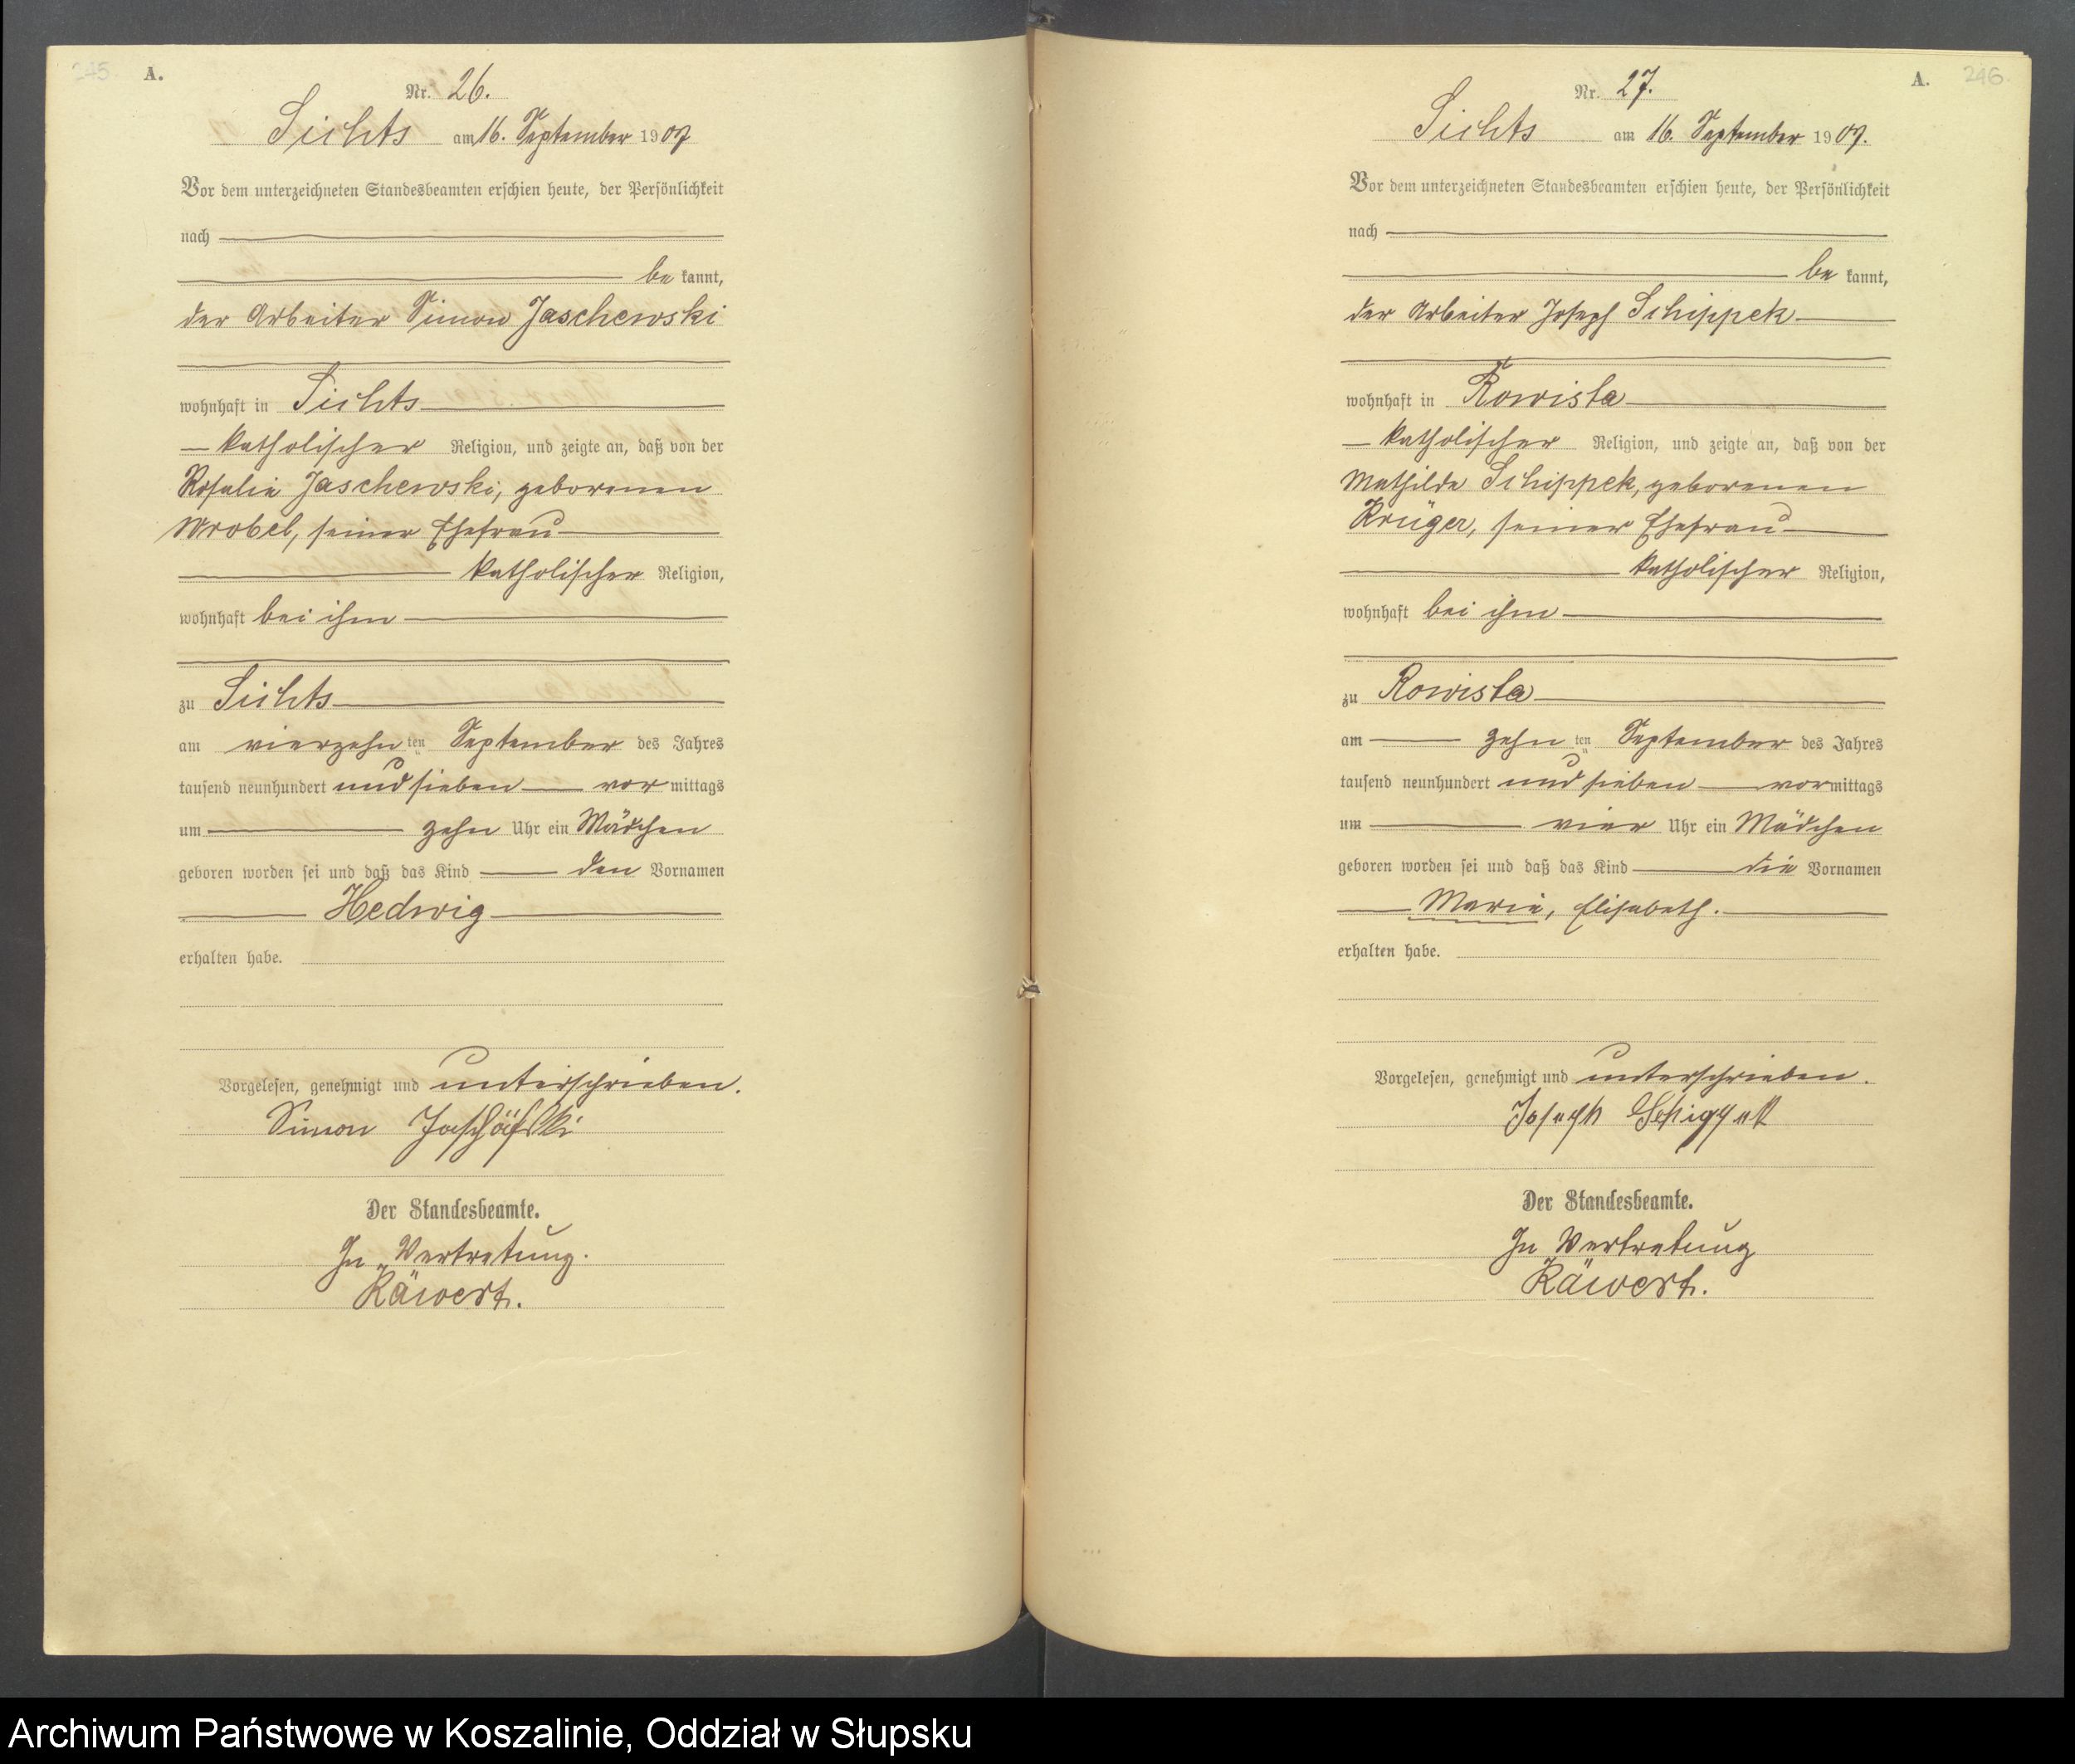 245.
A.
Nr. 26.
Sichts am 16. September 1907
Vor dem unterzeichneten Standesbeamten erschien heute, der Persönlichkeit
nach
be kannt,
der Arbeiter Simon Jaschewski
wohnhaft in Sichts
katholischer Religion, und zeigte an, daß von der
Rosalie Jaschewski, geborenen
Wrobel, seiner Ehefrau
katholischer Religion,
wohnhaft bei ihm
zu Sichts
am vierzehn ten September des Jahres
tausend neunhundert und sieben vor mittags
um zehn Uhr ein Mädchen
geboren worden sei und daß das Kind den Vornamen
Hedwig
erhalten habe.
Vorgelesen, genehmigt und unterschrieben.
Simon Jaschäfski
Der Standesbeamte.
In Vertretung.
Räwert.
A.
246.
Nr. 27.
Sichts am 16. September 1907.
Vor dem unterzeichneten Standesbeamten erschien heute, der Persönlichkeit
nach
be kannt,
der Arbeiter Joseph Schippek
wohnhaft in Rowista
katholischer Religion, und zeigte an, daß von der
Mathilde Schippek, geborenen
Krüger, seiner Ehefrau
katholischer Religion,
wohnhaft bei ihm
zu Rowista
am zehn ten September des Jahres
tausend neunhundert und sieben vormittags
um vier Uhr ein Mädchen
geboren worden sei und daß das Kind die Vornamen
Marie, Elisabeth.
erhalten habe.
Vorgelesen, genehmigt und unterschrieben.
Joseph Schippek
Der Standesbeamte.
In Vertretung
Räwert.
Archiwum Państwowe w Koszalinie, Oddział w Słupsku